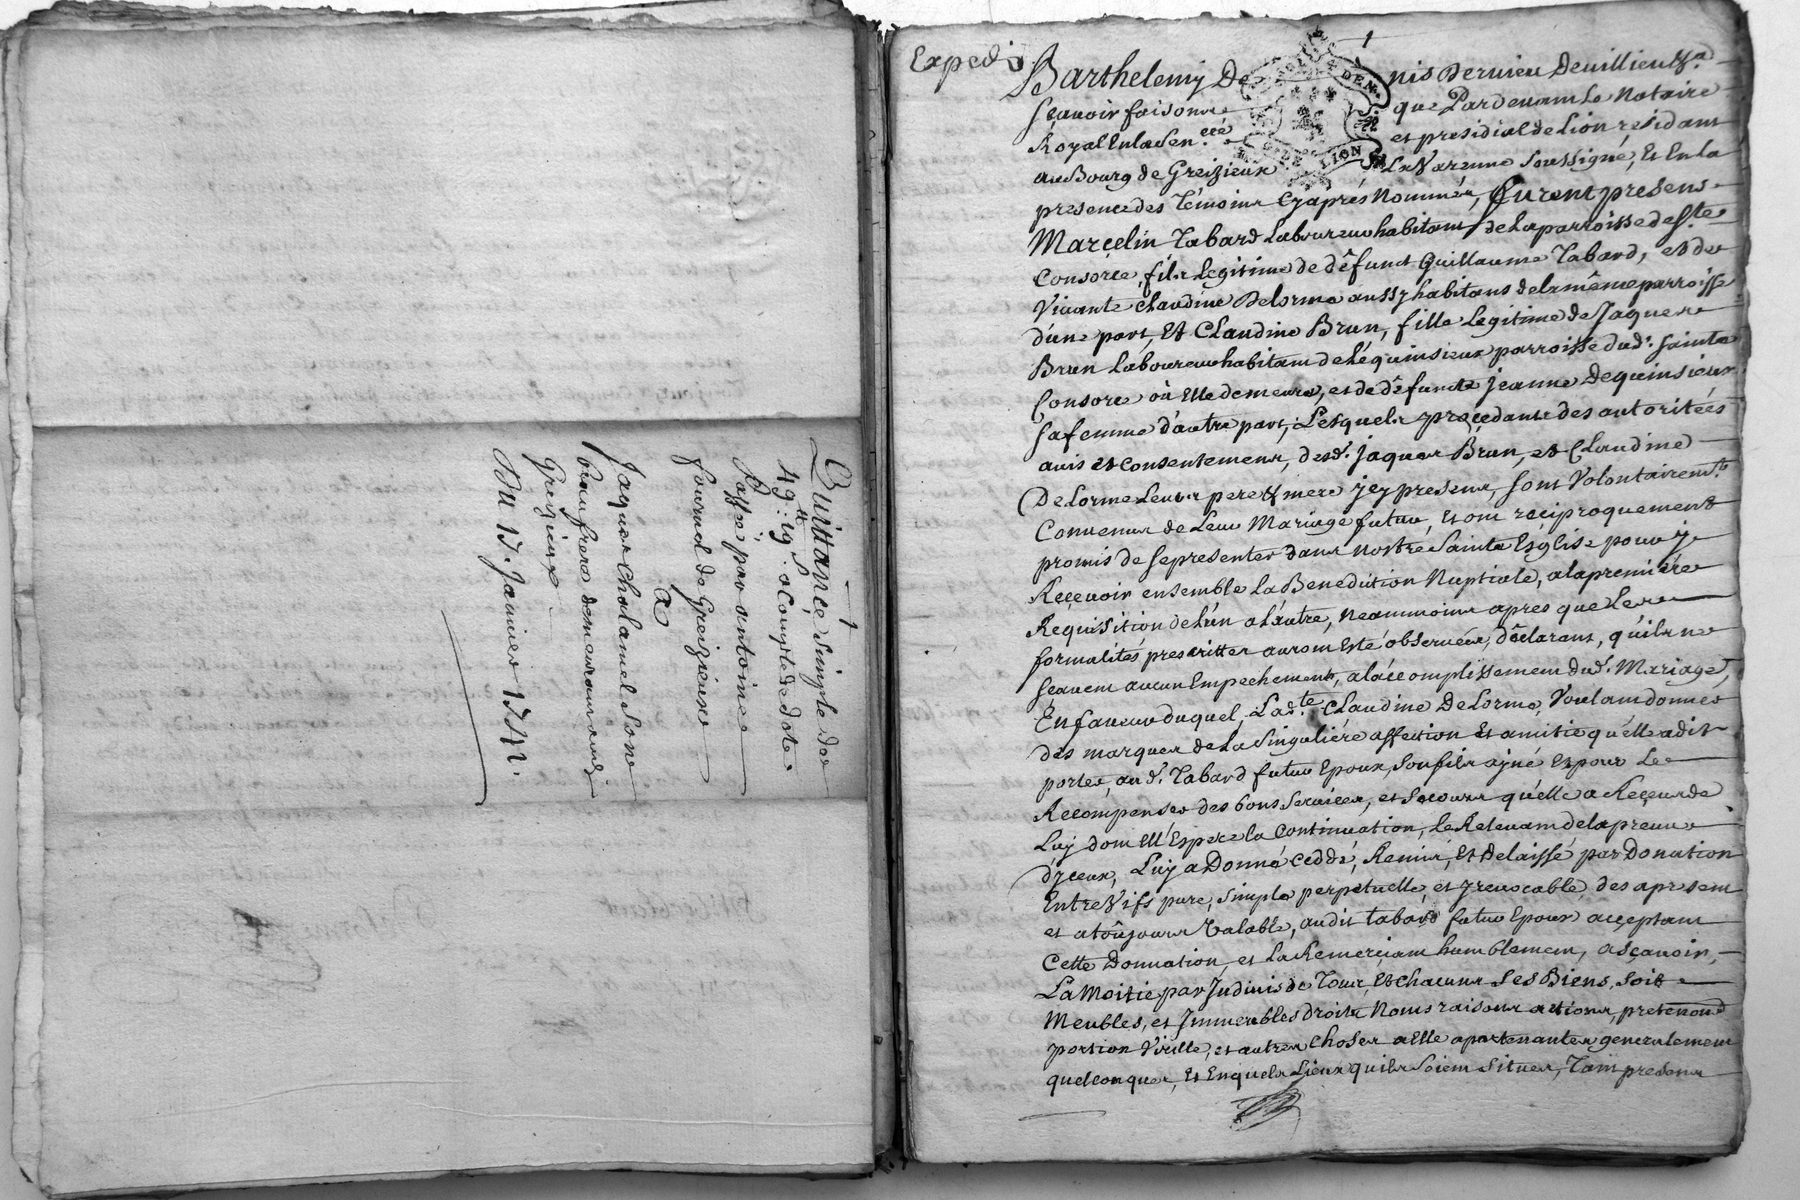 Quittance simple de
49.tt 19.s a Compte de dote
Passée par antoine
fournel de Greizieux
a
Jaques Chalamel Son
beaufrere demeurant aud.
Greizieux
Du 17. Janvier 1741.
1
Expedié
1
Barthelemy Denis Dervieu Devillieu &a
sçavoir faisons que Pardevant Le Notaire
Royal En la Sen.ceé et presidial de Lion residant
au Bourg de Greizieux La Varenne soussigné, Et En la
presence des Témoins Cyaprés Nommés, furent presens
Marçelin Tabard Laboureur habitant de la parroisse de Ste
Consorce, fils Legitime de défunct Guillaume Tabard, et de
Vivante Claudine Delorme aussy habitans de la même parroisse
d'une part, Et Claudine Brun, fille Legitime de Jaques
Brun Laboureur habitant de Léquinsieux parroisse dud. Sainte
Consorce où Elle demeure, et de défuncte jeanne Dequinsieux
sa femme d'autre part, Lesquels proçedants des autoritées
avis et consentement, desd. jaques Brun, et Claudine
De Lorme Leurs pere & mere jcy presens, sont Volontairemt.
Convenus de Leur Mariage futur, et ont reciproquement
promis de se presenter dans Nostre Sainte Esglise pour y
Reçevoir ensemble La Benediction Nuptiale, a la premiére
Requisition de L'un a L'autre, neammoins apres que Les
formalités prescrittes auront Esté observées, déclarant, qu'ils ne
sçavent aucun Empechement, a laccomplissement dud. Mariage,
En faveur duquel, Lad.te Claudine De Lorme, Voulant donner
des marques de La Singuliére affection Et amitié qu'elle a dit
porter, aud. Tabard futur Epoux, son fils ainé Et pour Le
Recompenser des bons Services, et Secours qu'elle a Reçeus de
Luy dont Ell'Espere la Continuation, Le Relevant de la preuve
d'jceux, Luy a Donné ceddé, Remis, Et delaissé par Donation
Entre Vifs pure, Simple perpetuelle, et jrevocable, des apresent
et a toûjours Valable, audit tabard futur Epoux acçeptant
Cette Donnation, et La Remerciant humblement, a sçavoir,
La Moitié par Indivis de Tous, Et Chacuns Ses Biens, Soit
Meubles, et Immeubles droits Noms raisons actions, pretentions
portion Virille, et autres Choses a Elle apartenantes generalement
quelconques, Et En quels Lieux qu'ils soient situés, Tant presens